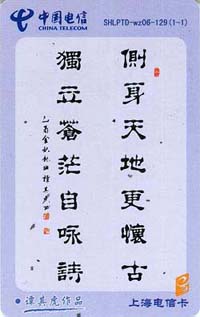 中国电信
CHINA TELECOM
SHLPTD-wz06-129(1-1)
側身天地更懷古
獨立蒼茫自咏詩
譚其虎作品
上海电信卡